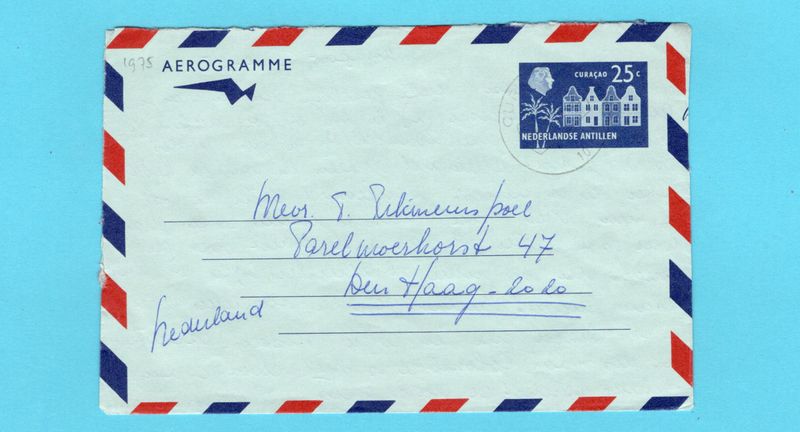 1975 AEROGRAMME
CURAÇAO 25 c
NEDERLANDSE ANTILLEN
Mevr. T.
Parelmoerhorst 47
Den Haag - 2020
Nederland